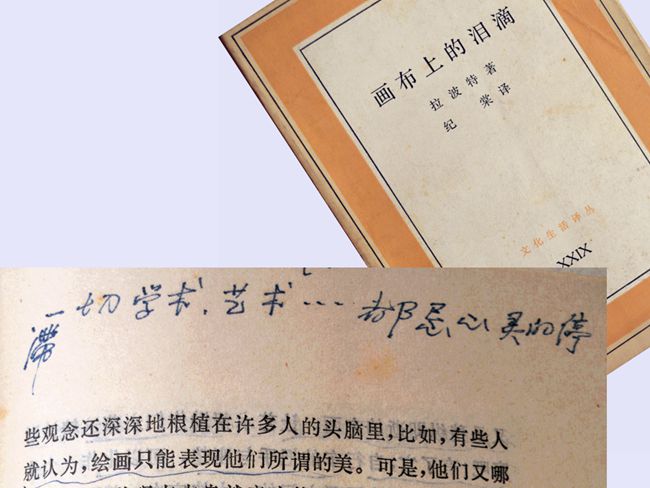 画布上的泪滴
拉波特著
纪棠译
文化生活译丛
XXIX
一切学术、艺术……都忌心灵的停
滞
些观念还深深地根植在许多人的头脑里，比如，有些人
就认为，绘画只能表现他们所谓的美。可是，他们又哪